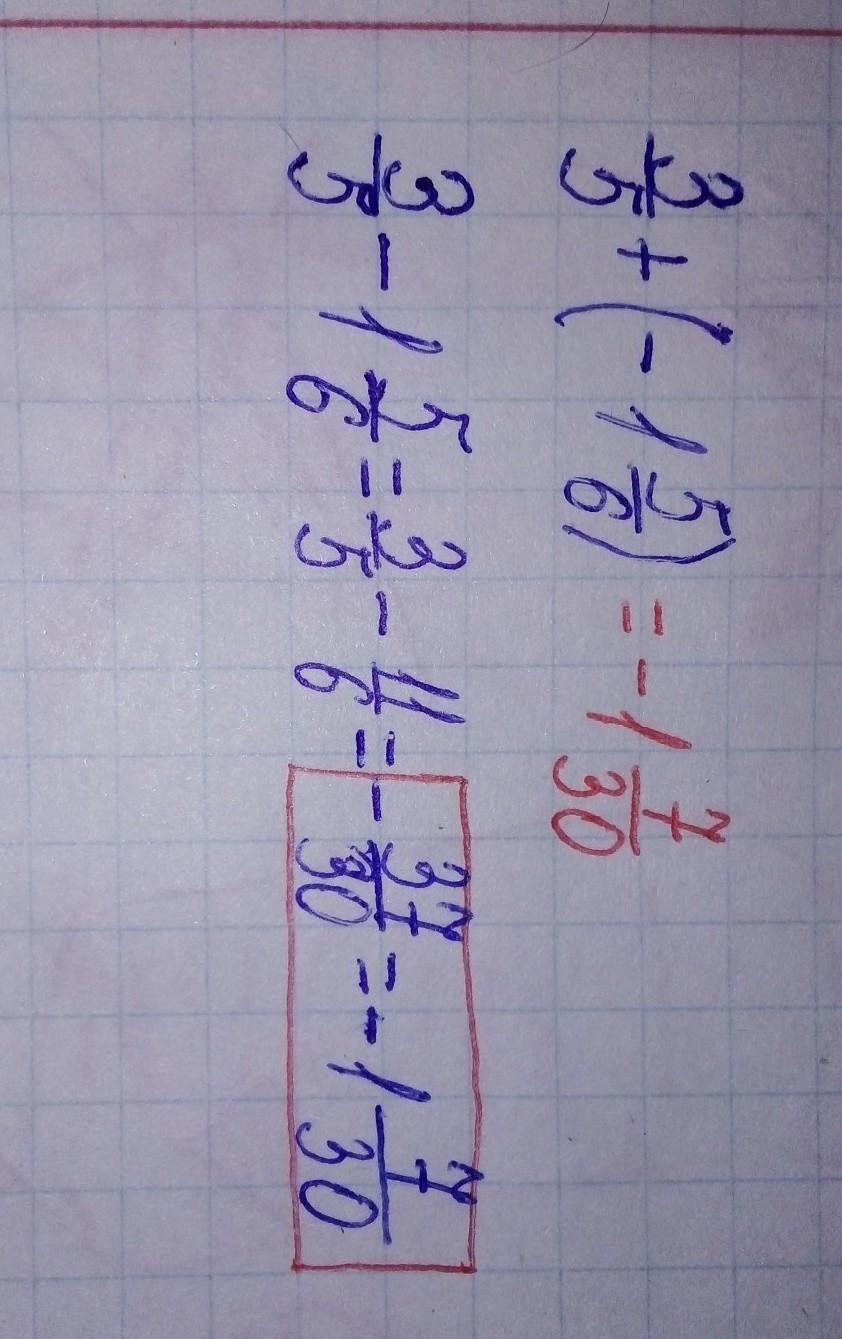 3/5 + (- 1 5/6) = - 1 7/30
3/5 - 1 5/6 = 3/5 - 11/6 = - 37/30 = - 1 7/30